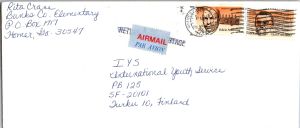 Rita Crane
Banks Co. Elementary
P O Box 1017
Homer, Ga - 30547
AIRMAIL
PAR AVION
I Y S
International Youth Service
PB 125
SF - 20101
Turku 10, Finland